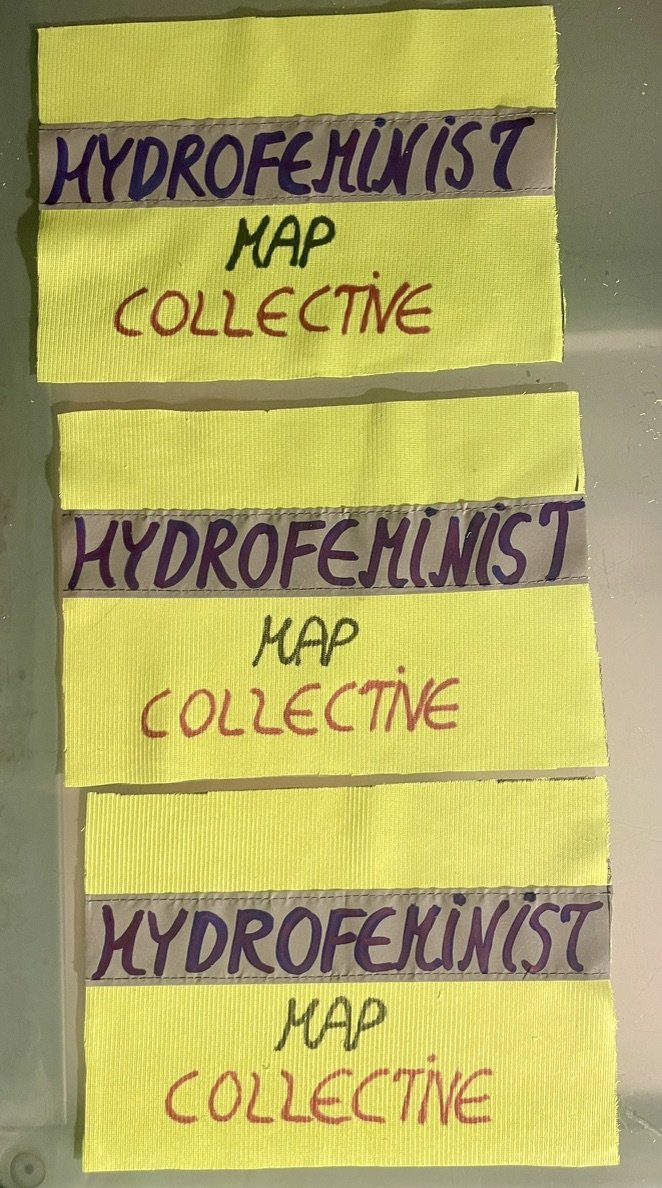 HYDROFEMINIST
MAP
COLLECTIVE
HYDROFEMINIST
MAP
COLLECTIVE
HYDROFEMINIST
MAP
COLLECTIVE